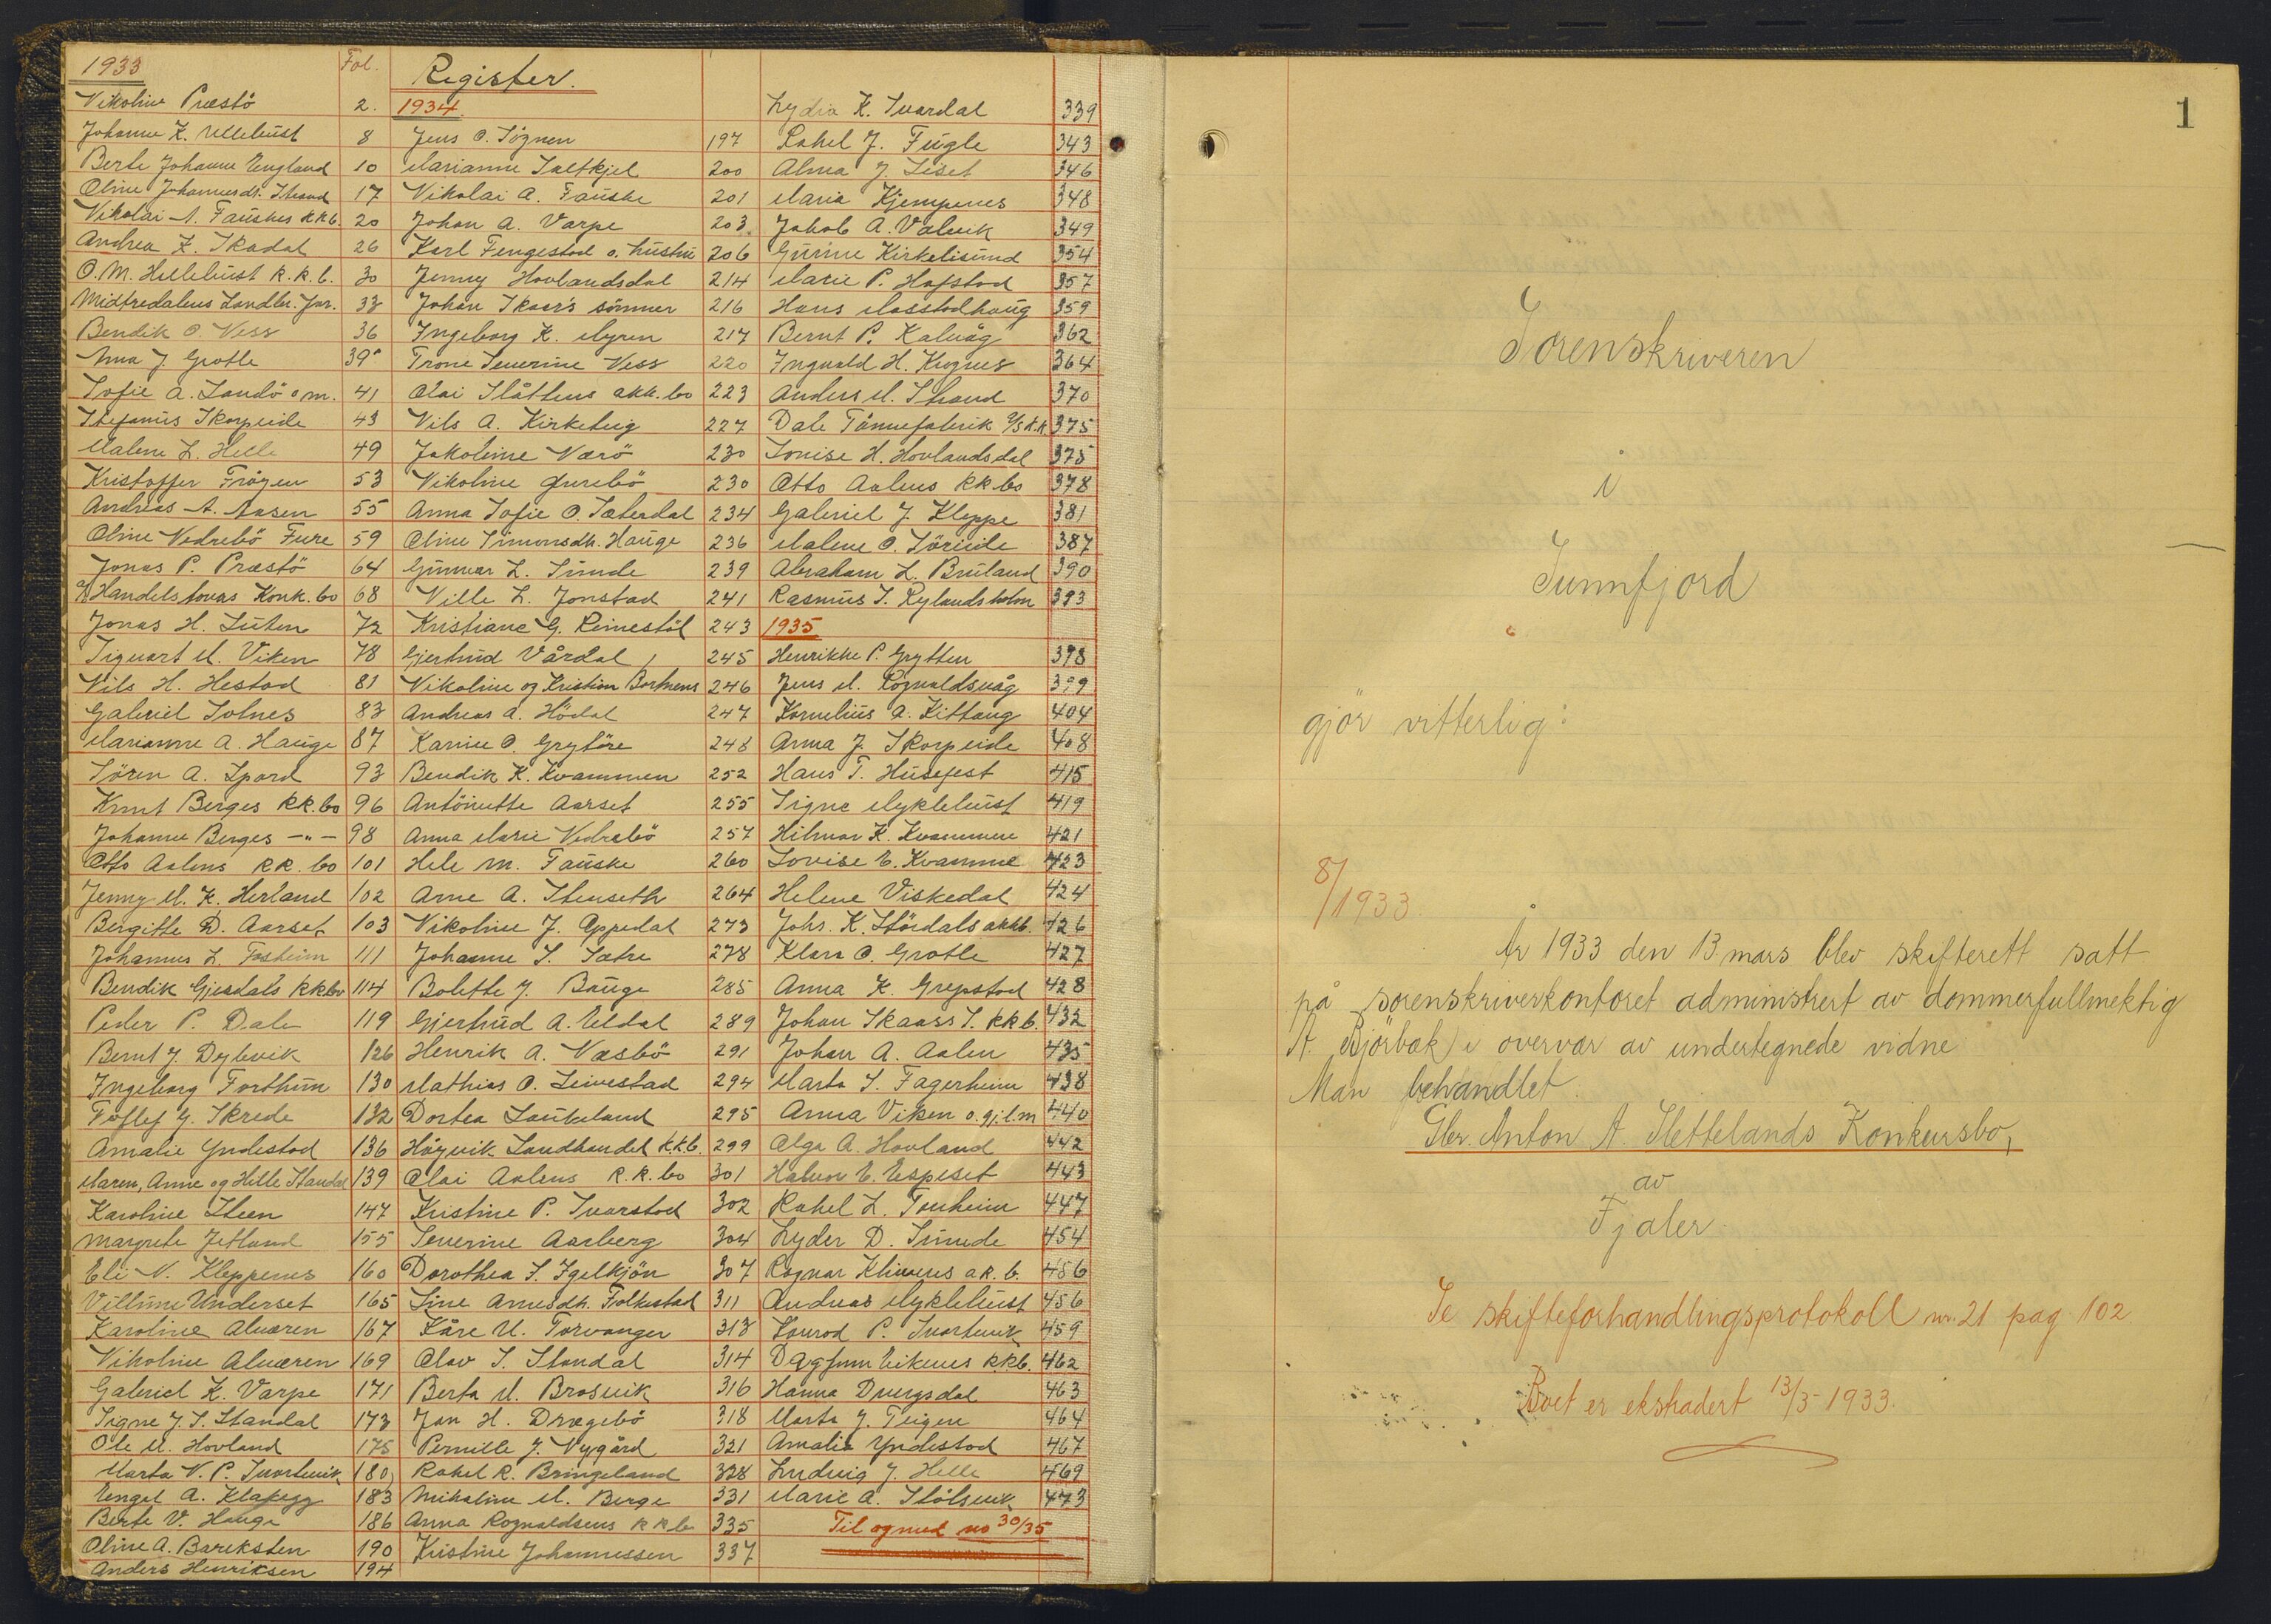 1933
Fol.
Nikoline Præstö 2.
Johanne K. Ullebust 8
Berte Johanne England 10
Oline Johannesdt. Strand 17
Nikolai A. Fauskes kkb. 20
Andrea K. Skadal 26
O. M. Hellebust k.k.b. 30
Midtredalens Landbr. For. 33
Bendik O Ness 36
Anna J. Grotle 39a
Sofie A. Sandö o m. 41
Stefanus Skorpeide 43
Malene L. Helle 49
Kristoffer Fröyen 53
Andreas A. Aasen 55
Oline Vedrebö Fure 59
Jonas P. Præstö 64
A/S Handelshuens Konk. bo 68
Jonas H. Luten 72
Sigvart M. Viken 78
Nils H. Hestad 81
Gabriel Solnes 83
Marianne A. Hauge 87
Sören A. Spord 93
Knut Berges kk. bo 96
Johanne Berges -"- 98
Otto Aalens kk. bo 101
Jenny M. K. Herland 102
Bergitte D. Aarset 103
Johannes L. Fosheim 111
Bendik Gjesdals kkbo 114
Peder P. Dale 119
Bernt J. Dybvik 126
Ingeborg Forthun 130
Tollef G. Skrede 132
Amalie Yndestad 136
Maren, Anne og Helle Standal 139
Karoline Steen 147
Margrete Jetlund 155
Eli N. Kleppenes 160
Villume Underset 165
Karoline Alværen 167
Nikoline Alværen 169
Gabriel K. Varpe 171
Signe J. S. Standal 173
Ole M. Hovland 175
Marta N. P. Svortevik 180
Engel A. Klakegg 183
Berte V. Hauge 186
Oline A. Bareksten 190
Anders Henriksen 194
Register.
1934.
Jens O. Sögnen 197
Marianne Saltkjel 200
Nikolai A. Fauske 201
Johan A. Varpe 203
Karl Fengestad o. hustru 206
Jenny Hovlandsdal 214
Johan Skaar's sönner 216
Ingeborg K. Myren 217
Trone Severine Ness 220
Olai Slåttens akk. bo 223
Nils A. Kirketeig 227
Jakobine Nærö 230
Nikoline Gurebö 230
Anna Sofie O. Sæterdal 234
Oline Simonsdtr. Hauge 236
Gunvor L. Sunde 239
Nille L. Jonstad 241
Kristiane G. Reinestöl 243
Gjertrud Vårdal 245
Nikoline og Kristian Bortnens 246
Andreas A. Hödal 247
Karine O. Grytöre 248
Bendik K. Kvammen 252
Antönette Aarset 255
Anna Marie Vedrebö 257
Hele M. Fauske 260
Arne A. Stenseth 264
Nikoline J. Oppedal 273
Johanne S. Sætre 278
Bolette J. Bauge 285
Gjertrud A. Eldal 289
Henrik A. Næsbö 291
Mathias O. Leivestad 294
Dortea Laukeland 295
Höyvik Landhandel k.k.b. 299
Olai Aalens k.k. bo 301
Kristine P. Svarstad 302
Severine Aarberg 304
Dorothea S. Igelkjön 307
Line Arnesdtr. Folkestad 311
Kåre U. Torvanger 313
Olav S. Standal 314
Berta M. Brosvik 316
Jan H. Drægebö 318
Pernille J. Nygård 321
Rakel R. Bringeland 328
Mikaline M. Berge 331
Anna Rognaldsens kkb 335
Kristine Johannessen 337
Lydia K. Svardal 339
Rakel J. Fugle 343
Alma J. Liset 346
Maria Kjempenes 348
Jakob A. Valvik 349
Gurine Kirkelisund 354
Marie P. Hafstad 357
Hans Masstadhaug 359
Bernt P. Kalvåg 362
Ingvald H. Krognes 364
Anders M. Strand 370
Dale Tönnefabrik A/S k.k. 375
Louise H. Hovlandsdal 375
Otto Aalens kk bo 378
Gabriel J. Kleppe 381
Malene O. Söreide 387
Abraham L. Bruland 390
Rasmus S. Rylandsholm 393
1935
Henrikke P. Grytten 398
Jens M. Rognaldsvåg 399
Kornelius A. Kittang 404
Anna J. Skorpeide 408
Hans T. Husefest 415
Signe Myklebust 419
Hilmar K. Kvamme 421
Lovise E. Kvamme 423
Helene Viskedal 424
Johs. K. Stördals akkb. 426
Klara O. Grotle 427
Anna K. Grepstad 428
Johan Skaars S. kkb. 432
Johan A. Aalen 435
Marta S. Fagerheim 438
Anna Viken o. gj.l.m 440
Olga A. Hovland 442
Halvor E. Espeset 443
Rakel L. Tonheim 447
Lyder D. Sunde 454
Ragnar Klivenes a k. b. 456
Andreas Myklebust 456
Konrad P. Svortevik 459
Dagfinn Eikenes k.k.b. 462
Hanna Dvergsdal 463
Marta J. Teigen 464
Amalia Yndestad 467
Ludvig J. Helle 469
Marie A. Stölsvik 473
Til og med no 30/35
1
Sorenskriveren
i
Sunnfjord
gjör vitterlig:
8/1933.
År 1933 den 13. mars blev skifterett satt
på sorenskriverkontoret administrert av dommerfullmektig
A. Björbæk i overvær av undertegnede vidne
Man behandlet:
Gbr. Anton A. Slettelands Konkursbo,
av
Fjaler.
Se skifteforhandlingsprotokoll nr. 21 pag. 102.
Boet er ekstradert 13/3-1933.